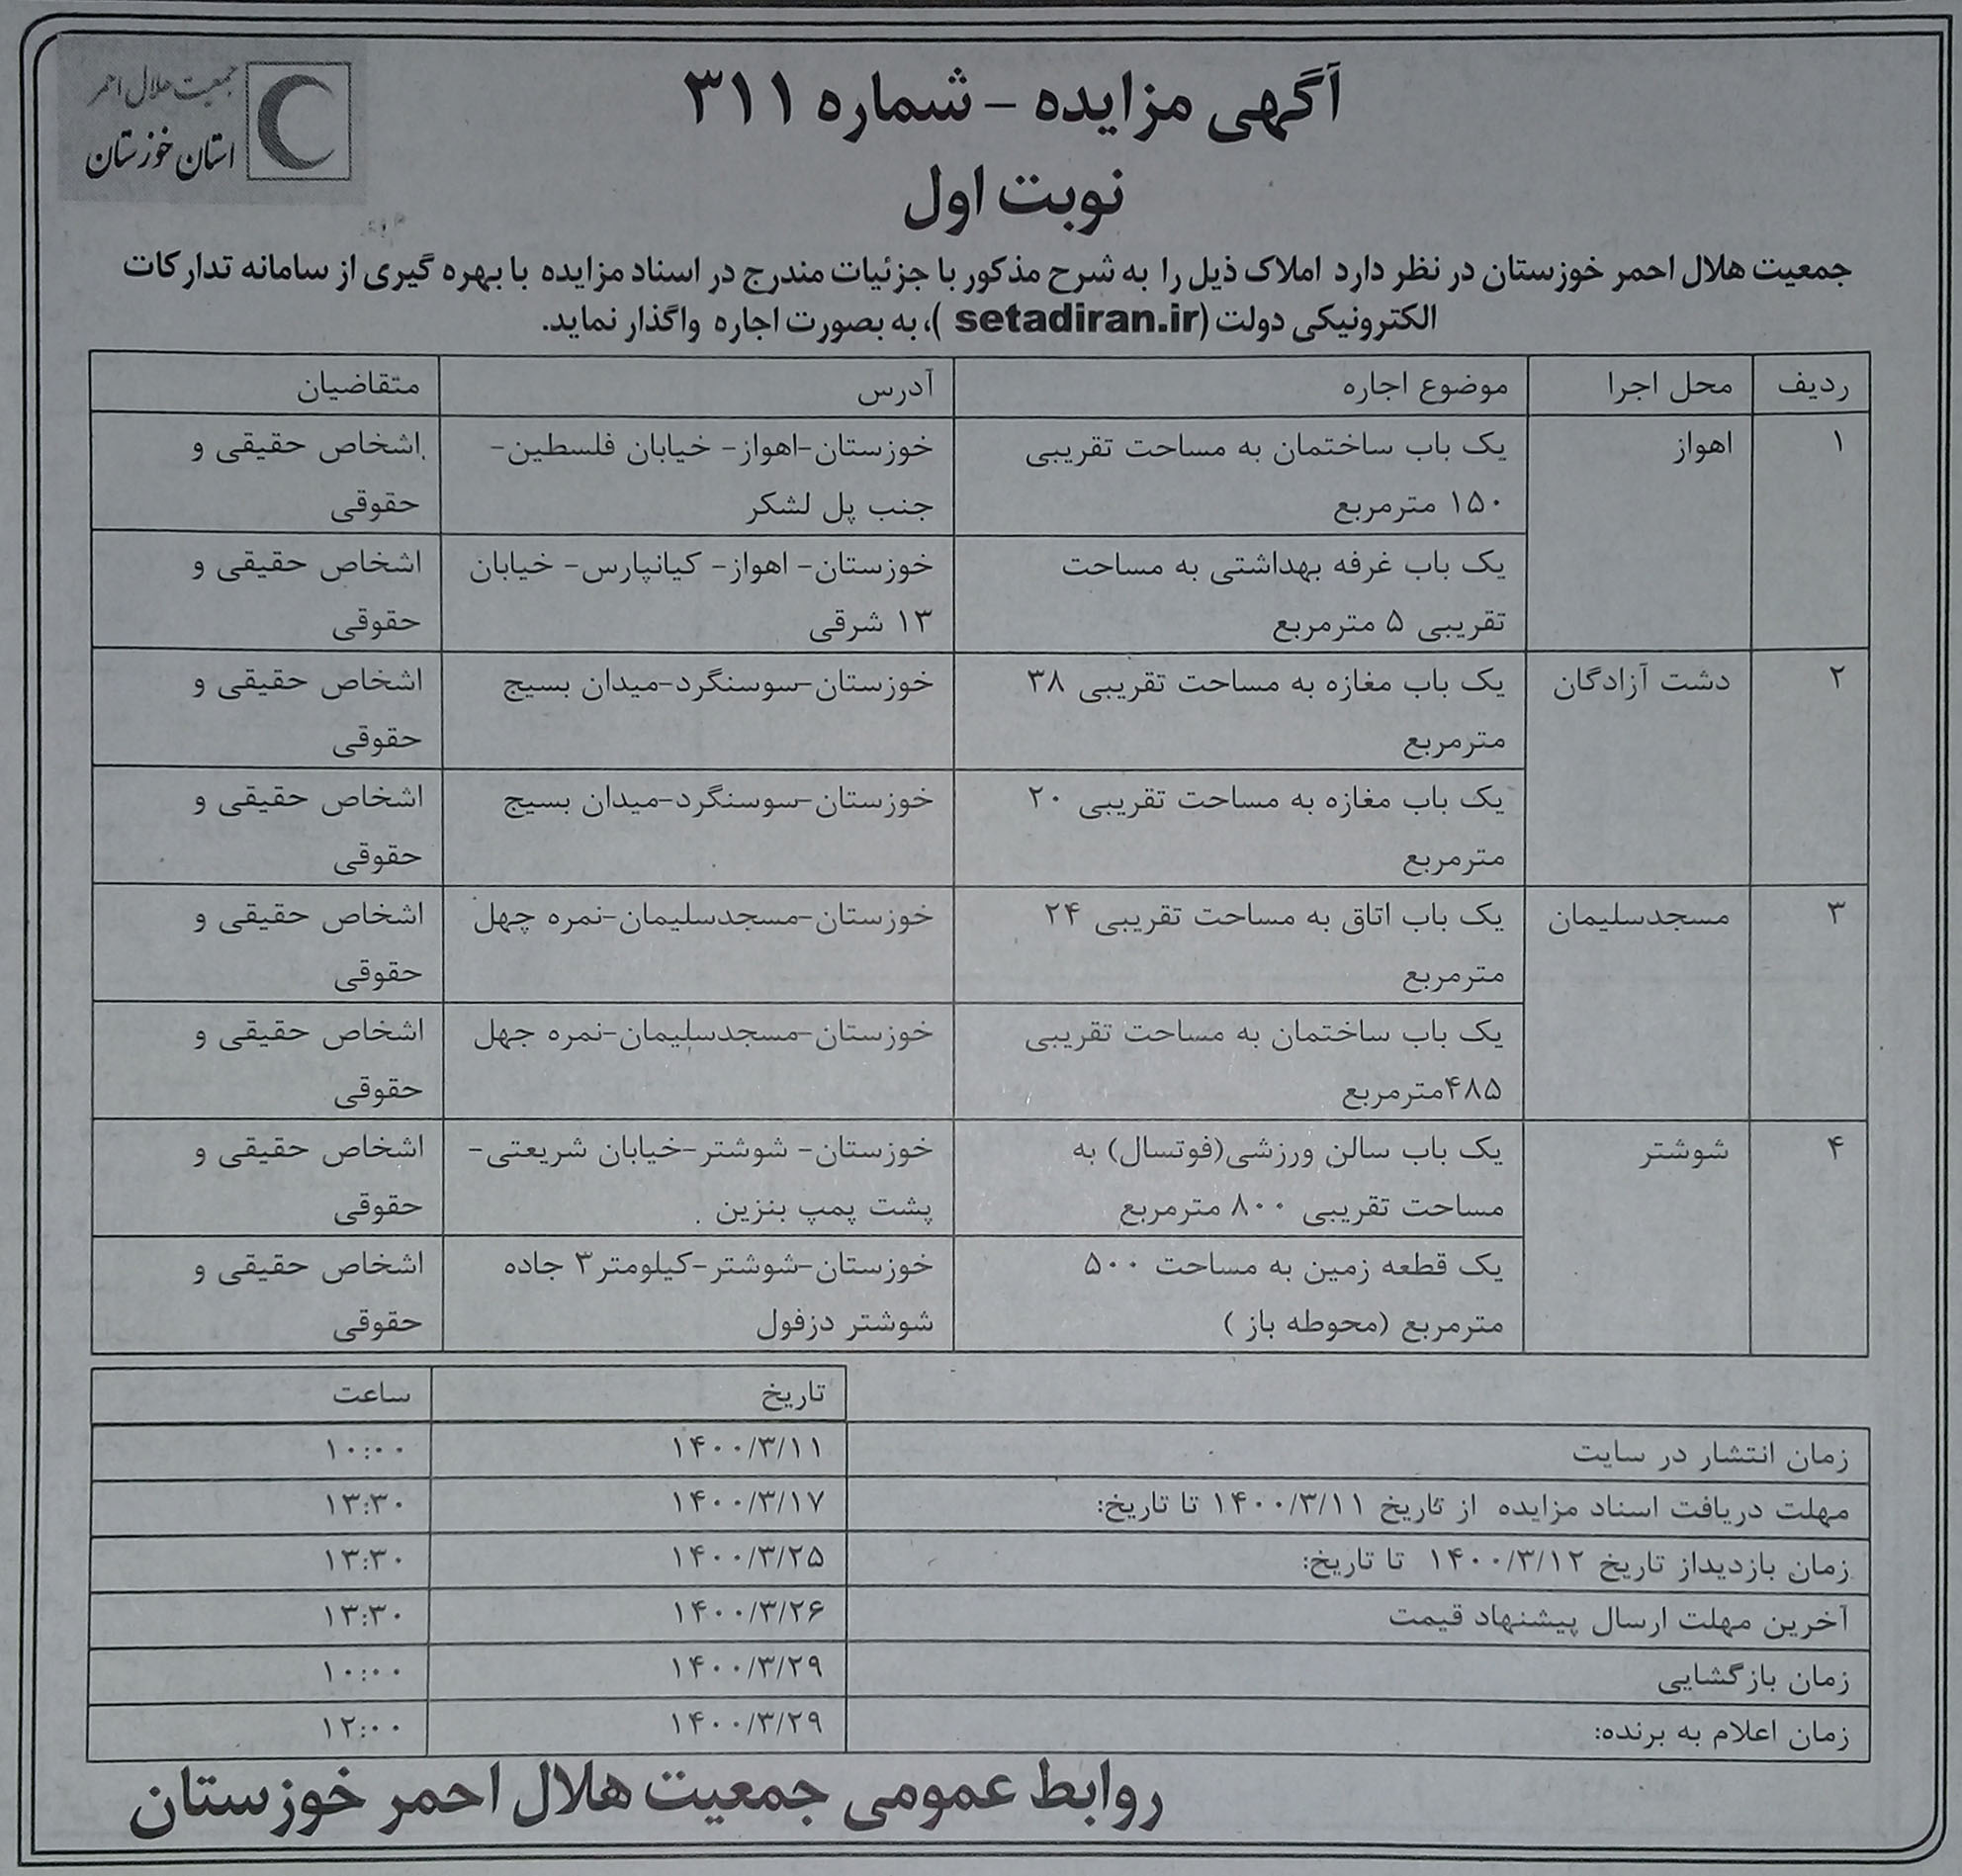 جمعیت هلال احمر
استان خوزستان
آگهی مزایده - شماره ۳۱۱
نوبت اول
جمعیت هلال احمر خوزستان در نظر دارد املاک ذیل را به شرح مذکور با جزئیات مندرج در اسناد مزایده با بهره گیری از سامانه تدارکات
الکترونیکی دولت (setadiran.ir )، به بصورت اجاره واگذار نماید.
ردیف محل اجرا موضوع اجاره آدرس متقاضیان
۱ اهواز یک باب ساختمان به مساحت تقریبی خوزستان-اهواز- خیابان فلسطین- اشخاص حقیقی و
۱۵۰ مترمربع جنب پل لشکر حقوقی
یک باب غرفه بهداشتی به مساحت خوزستان- اهواز- کیانپارس- خیابان اشخاص حقیقی و
تقریبی ۵ مترمربع ۱۳ شرقی حقوقی
۲ دشت آزادگان یک باب مغازه به مساحت تقریبی ۳۸ خوزستان-سوسنگرد-میدان بسیج اشخاص حقیقی و
مترمربع حقوقی
یک باب مغازه به مساحت تقریبی ۲۰ خوزستان-سوسنگرد-میدان بسیج اشخاص حقیقی و
مترمربع حقوقی
۳ مسجدسلیمان یک باب اتاق به مساحت تقریبی ۲۴ خوزستان-مسجدسلیمان-نمره چهل اشخاص حقیقی و
مترمربع حقوقی
یک باب ساختمان به مساحت تقریبی خوزستان-مسجدسلیمان-نمره جهل اشخاص حقیقی و
۴۸۵مترمربع حقوقی
۴ شوشتر یک باب سالن ورزشی(فوتسال) به خوزستان- شوشتر-خیابان شریعتی- اشخاص حقیقی و
مساحت تقریبی ۸۰۰ مترمربع پشت پمپ بنزین حقوقی
یک قطعه زمین به مساحت ۵۰۰ خوزستان-شوشتر-کیلومتر۳ جاده اشخاص حقیقی و
مترمربع (محوطه باز ) شوشتر دزفول حقوقی
تاریخ ساعت
زمان انتشار در سایت ۱۴۰۰/۳/۱۱ ۱۰:۰۰
مهلت دریافت اسناد مزایده از تاریخ ۱۴۰۰/۳/۱۱ تا تاریخ: ۱۴۰۰/۳/۱۷ ۱۳:۳۰
زمان بازدیداز تاریخ ۱۴۰۰/۳/۱۲ تا تاریخ: ۱۴۰۰/۳/۲۵ ۱۳:۳۰
آخرین مهلت ارسال پیشنهاد قیمت ۱۴۰۰/۳/۲۶ ۱۳:۳۰
زمان بازگشایی ۱۴۰۰/۳/۲۹ ۱۰:۰۰
زمان اعلام به برنده: ۱۴۰۰/۳/۲۹ ۱۲:۰۰
روابط عمومی جمعیت هلال احمر خوزستان